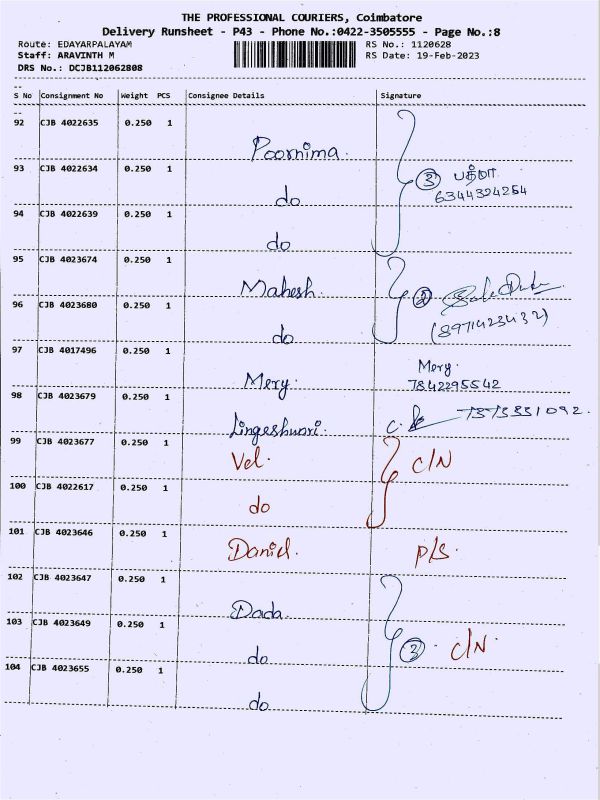 THE PROFESSIONAL COURIERS, Coimbatore
Delivery Runsheet - P43 - Phone No.:0422-3505555 - Page No.:8
Route: EDAYARPALAYAM RS No.: 1120628
Staff: ARAVINTH M RS Date: 19-Feb-2023
DRS No.: DCJB112062808
--
S No Consignment No Weight PCS Consignee Details Signature
--
92 CJB 4022635 0.250 1
Poornima.
93 CJB 4022634 0.250 1 3 பத்மா
do 6344324264
94 CJB 4022639 0.250 1
do
95 CJB 4023674 0.250 1
Mahesh. 2
96 CJB 4023680 0.250 1 (8971423432)
do
97 CJB 4017496 0.250 1 Mery
Mery. 7842295542
98 CJB 4023679 0.250 1
Lingeshwari. C. 7373831092.
99 CJB 4023677 0.250 1
Vel. C/N
100 CJB 4022617 0.250 1
do
101 CJB 4023646 0.250 1
Daniel. P/S.
102 CJB 4023647 0.250 1
Dada.
103 CJB 4023649 0.250 1
do 3 C/N
104 CJB 4023655 0.250 1
do